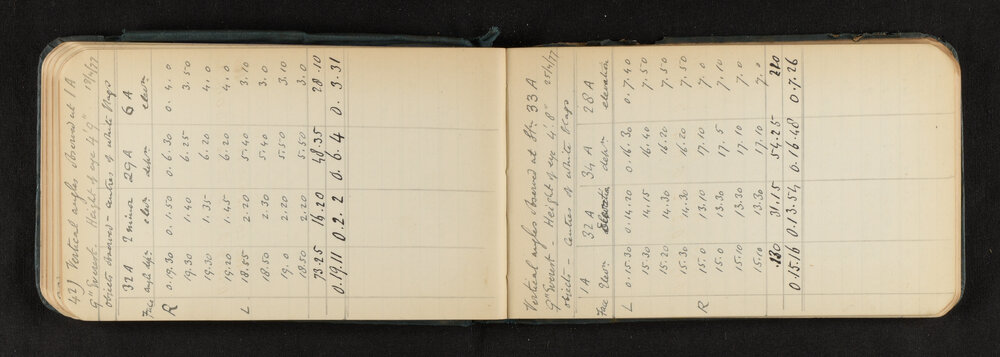 42) Vertical angles observed at 1A
9" Everest. Height of eye 4' 9" 19/4/77
objects observed - centres of White Flags
32 A 2 minor 29 A 6 A
Face angle depn. elevn. depn. elevn.
R 0.19.30 0.1.50 0.6.30 0.4.0
19.30 1.40 6.25 3.50
19.30 1.35 6.20 4.0
19.20 1.45 6.20 4.0
L 18.55 2.20 5.40 3.10
18.50 2.30 5.40 3.0
19.0 2.20 5.50 3.10
18.50 2.20 5.50 3.0
73.25 16.20 48.35 28.10
0.19.11 0.2.2 0.6.4 0.3.31
Vertical angles observed at Stn. 33 A
9" Everest - Height of eye 4' 8" 25/4/77
objects - centres of White Flags
1A 32 A 34 A 28 A
Face Elevn. Elevation depn. elevation
L 0.15.30 0.14.20 0.16.30 0.7.40
15.30 14.15 16.40 7.50
15.20 14.30 16.20 7.50
15.30 14.30 16.20 7.50
R 15.0 13.10 17.10 7.0
15.10 13.30 17.5 7.10
15.10 13.30 17.10 7.0
15.10 13.30 17.10 7.0
130 31.15 54.25
0.15.16 0.13.54 0.16.48 0.7.26